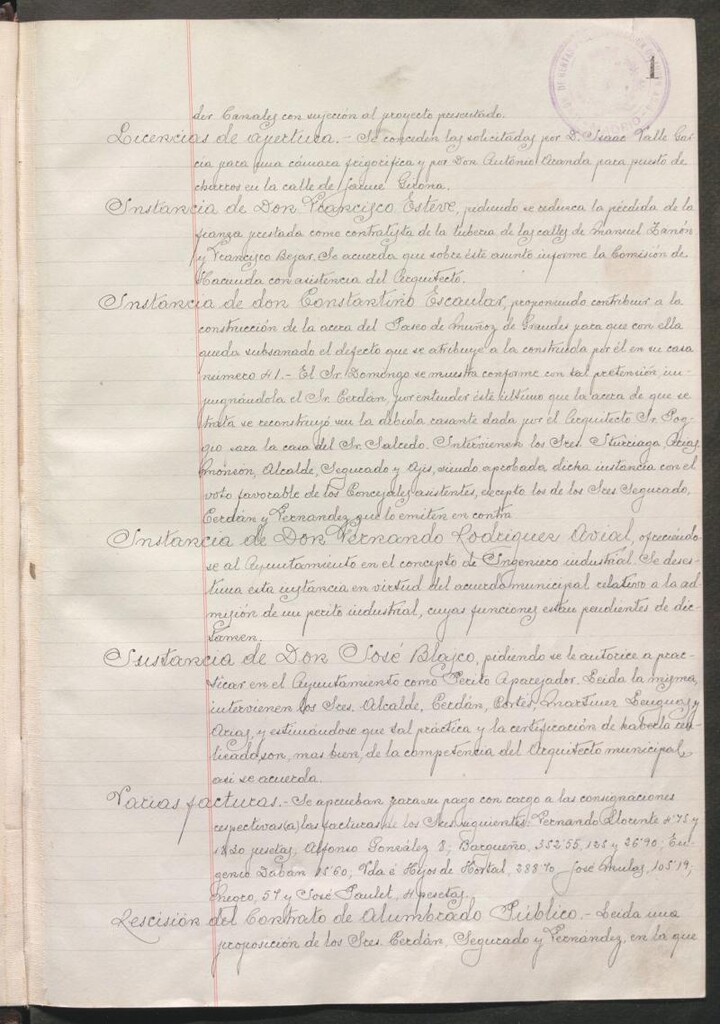 1
der Canales con sujeción al proyecto presentado.
Licencias de apertura.- Se conceden las solicitadas por D. Isaac Valle Gar-
cía para una cámara frigorífica y por Don Antonio Aranda para puesto de
churros en la calle de Jaime Girona.
Instancia de Don Francisco Esteve, pidiendo se reduzca la pérdida de la
fianza prestada como contratista de la tubería de las calles de Manuel Zanón
y Francisco Bejar. Se acuerda que sobre éste asunto informe la Comisión de
Hacienda con asistencia del Arquitecto.
Instancia de don Constantino Escaular, proponiendo contribuir a la
construcción de la acera del Paseo de Muñoz de Grandes para que con ella
queda subsanado el defecto que se atribuye a la construida por él en su casa
número 41.- El Sr. Domingo se muestra conforme con tal pretensión, im-
pugnándola el Sr. Cerdán, por entender éste último que la acera de que se
trata se reconstruyó en la debida rasante dada por el Arquitecto Sr. Pog-
gio para la casa del Sr. Salcedo. Intervienen los Sres. Iturriaga, Arias,
Monson, Alcalde, Segurado y Ajis, siendo aprobada dicha instancia con el
voto favorable de los Concejales asistentes, excepto los de los Sres. Segurado,
Cerdán y Fernandez que lo emiten en contra
Instancia de Don Fernando Rodriguez Avial, ofreciéndo-
se al Ayuntamiento en el concepto de Ingeniero industrial. Se deses-
tima esta instancia en virtud del acuerdo municipal relativo a la ad-
misión de un perito industrial, cuyas funciones están pendientes de dic-
tamen.
Instancia de Don José Blasco, pidiendo se le autorice a prac-
ticar en el Ayuntamiento como Perito Aparejador. Leida la misma,
intervienen los Sres. Alcalde, Cerdán, Cortés, Martinez Lenguas y
Arias, y estimándose que tal práctica y la certificación de haberla
son, mas bien, de la competencia del Arquitecto municipal,
asi se acuerda.
Varias facturas.- Se aprueban para su pago con cargo a las consignaciones
respectivas (a) las facturas de los Sres. siguientes: Fernando Llorente 4'75 y
pesetas, Alfonso González 8; Barqueño, 352'55, 125 y 26'90; Eu-
genio Dabán 15'60, Vda é Hijos de Hortal, 288'70 José Mulas, 105'19,
57 y José Paulet, 4 pesetas.
Rescisión del Contrato de Alumbrado Público.- Leida una
proposición de los Sres. Cerdán, Segurado y Fernández, en la que